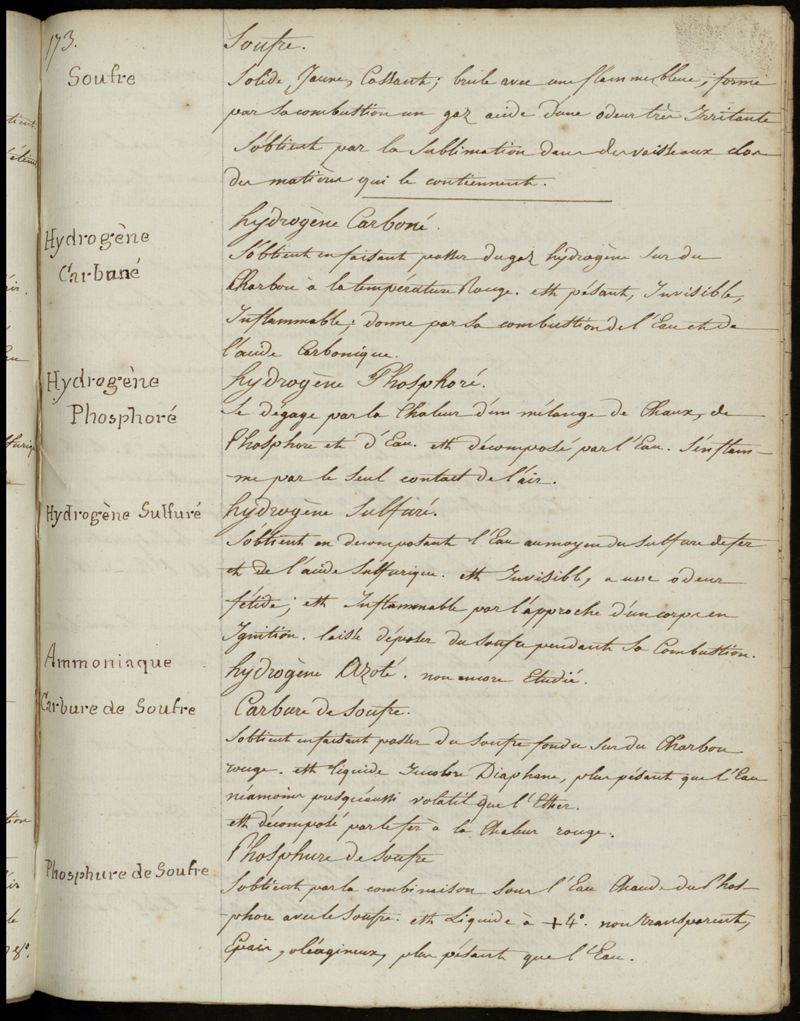 173.
Soufre.
Soufre
Solide Jaune, Cassant; brule avec une flamme bleue, forme
par sa combustion un gaz acide d'une odeur très Irritante
S'obtient par la Sublimation dans des vaisseaux clos
des matières qui le contiennent.
hydrogène Carboné.
Hydrogène
Carboné
S'obtient en faisant passer du gaz hydrogène sur du
Charbon à la température Rouge. est pésant, Invisible,
Inflammable; donne par sa combustion de l'Eau et de
l'acide Carbonique.
hydrogène Phosphoré.
Hydrogène
Phosphoré
Se dégage par la Chaleur d'un mélange de Chaux, de
Phosphore et d'Eau. est décomposé par l'Eau. S'enflam-
-me par le Seul contact de l'air.
hydrogène Sulfuré.
Hydrogène Sulfuré
S'obtient en decomposant l'Eau au moyen du Sulfure de fer
et de l'acide Sulfurique. est Invisible, a une odeur
fétide; est Inflammable par l'approche d'un corps en
Ignition. laisse déposer du Soufre pendant sa Combustion.
Ammoniaque
hydrogène Azoté. non encore Etudié.
Carbure de Soufre
Carbure de Soufre.
S'obtient en faisant passer du Soufre fondu sur du Charbon
rouge. est liquide Incolore Diaphane, plus pésant que l'Eau
néamoins presqu'aussi volatil que l'Ether.
est décomposé par le fer à la Chaleur rouge.
Phosphure de Soufre
Phosphure de Soufre
S'obtient par la combinaison sous l'Eau Chaude du Phos-
-phore avec le Soufre. est Liquide à +4°. non transparent,
Epais, oléagineux, plus pésant que l'Eau.